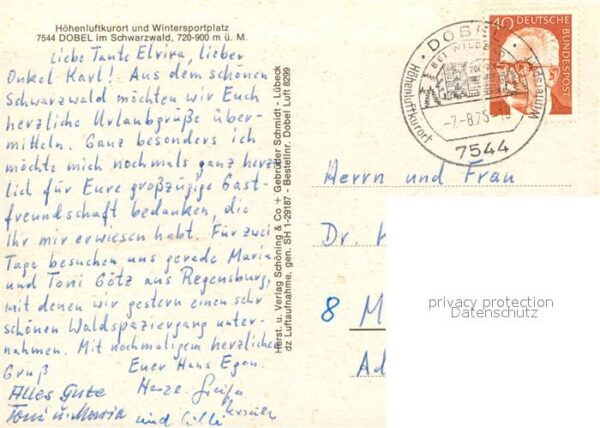 Höhenluftkurort und Wintersportplatz
7544 DOBEL im Schwarzwald, 720-900 m ü. M.
Liebe Tante Elvira, lieber
Onkel Karl! Aus dem schönen
Schwarzwald möchten wir Euch
herzliche Urlaubsgrüße über-
mitteln. Ganz besonders ich
möchte mich nochmals ganz herz
lich für Eure großzügige Gast-
freundschaft bedanken, die
Ihr mir erwiesen habt. Für zwei
Tage besuchen uns gerade Maria
und Toni Götz aus Regensburg,
mit denen wir gestern einen sehr
schönen Waldspaziergang unter-
nahmen. Mit nochmaligem herzlichen
Gruß Euer Hans Egon.
Alles Gute
Toni u. Maria
und Cilli
Horst u. Verlag Schöning & Co + Gebrüder Schmidt - Lübeck
dz Luftaufnahme, gen. SH 1-29187 - Bestellnr. Dobel Luft 8299
DOBEL
Höhenluftkurort
Wintersport
-7.-8.75
7544
40 DEUTSCHE
BUNDESPOST
Herrn und Frau
Dr.
8 M
Ad
privacy protection
Datenschutz